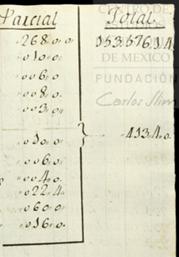 Parcial Total
268.0.0 153.576.1.4
010.0.
006.0.
008.0.
003.0.
010.0. 413.4.0.
006.0.
004.0.
022.4.
060.0.
016.0.
CENTRO DE
DE MÉXICO
FUNDACIÓN
Carlos Slim